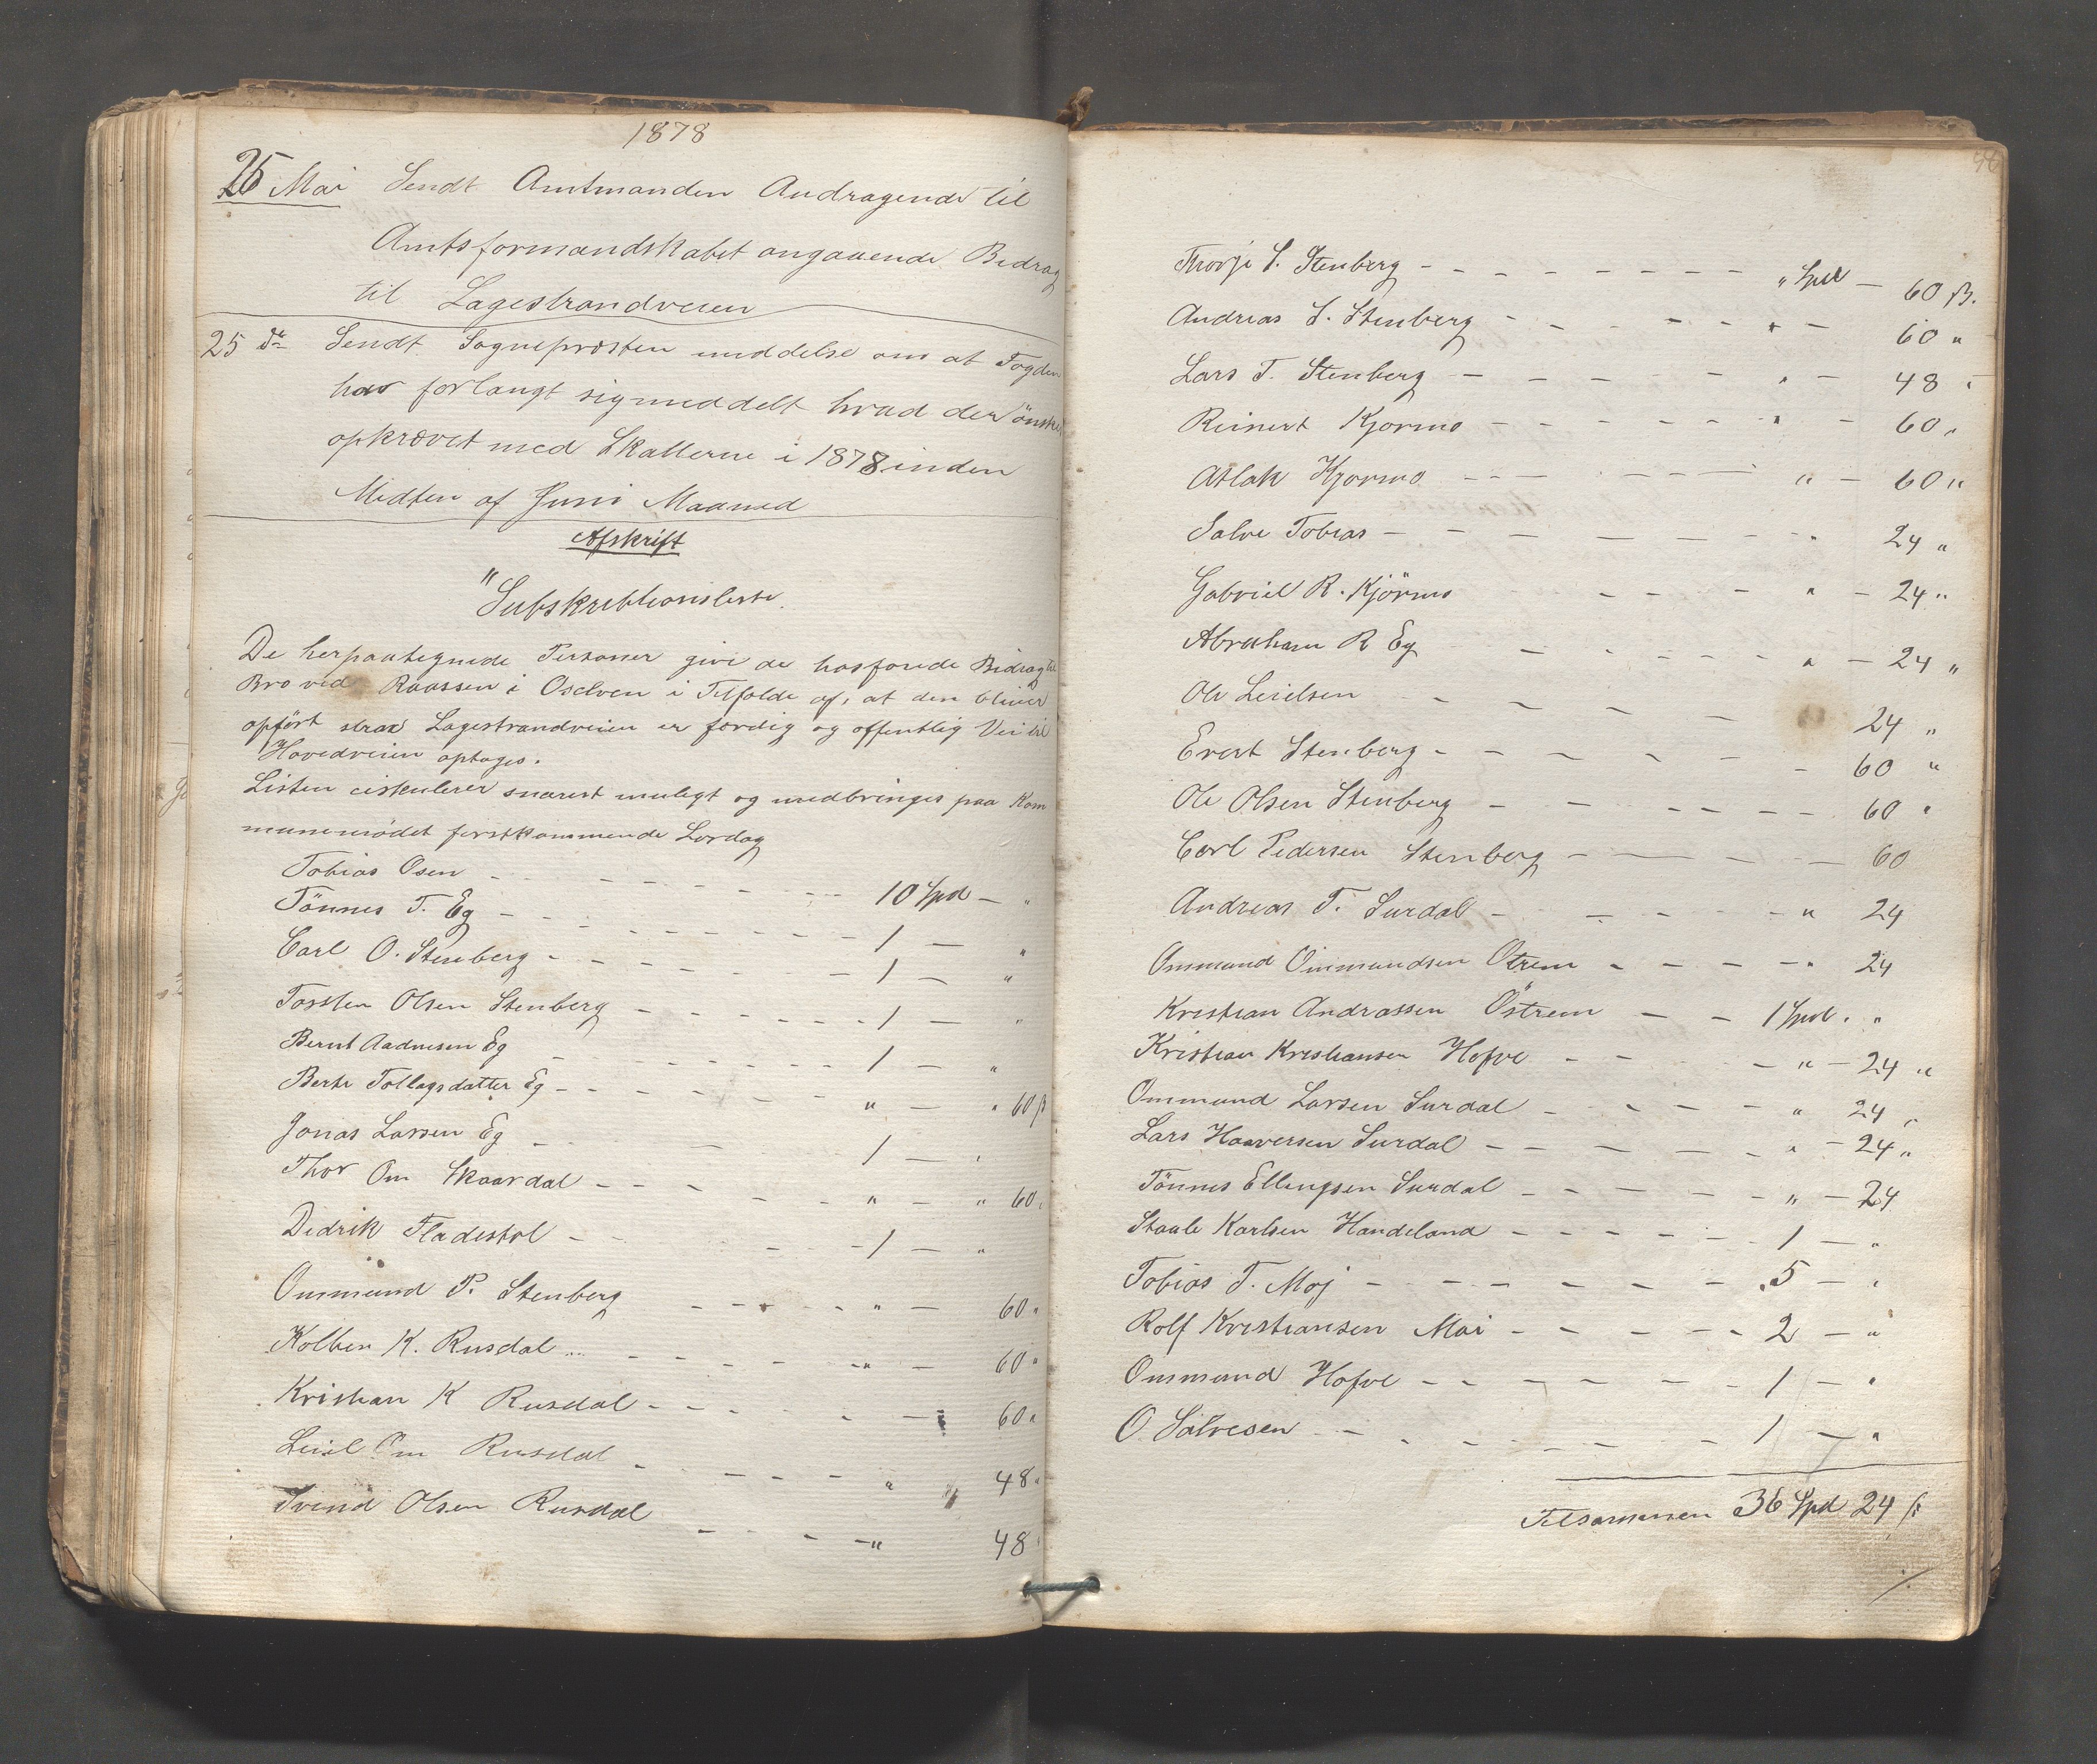 1878
25 Mai Sendt Amtmanden Andragende til
Amtsformandskabet angaaende Bidrag
til Lagestrandveien
25 do Sendt Sognepræsten meddelse om at Fogden
har forlangt sig meddelt hvad der önskes
opkrævet med Skatterne i 1878 inden
Midten af Juni Maaned
Afskrift
"Subskriktionsliste.
De herpaategnede Personer give de hosförede Bidrag til
Bro ved Raassen i Oselven i Tilfælde af, at den bliver
opfört strax Lagestrandveien er færdig og offentlig Vei til
Hovedveien optages.
Listen cirkulerer snarest muligt og medbringes paa Kom
munemödet förstkommende Lördag
Tobias Osen - - - - 10 Spd - "
Tönnes T. Eg - - - - 1 - "
Carl O. Stenberg - - - - 1 - "
Torsten Olsen Stenberg - - - - 1 - "
Bernt Aadnesen Eg - - - - 1 - "
Berte Tollagsdatter Eg - - - - " - " 60 ß
Jonas Larsen Eg - - - - 1 - "
Thor Om Skaardal - - - - " - " 60 "
Didrik Fladestöl - - - - 1 - "
Ommund P. Stenberg - - - - " - 60 "
Kolben K. Rusdal - - - - " - 60 "
Kristian K Rusdal - - - - 60 "
Leiel Om Rusdal - - - - " 48 "
Svend Olsen Rusdal - - - - " 48 "
46
Thorje S. Stenberg - - - - " Spd - 60 ß.
Andreas S. Stenberg - - - - " - 60 "
Lars T. Stenberg - - - - " - 48 "
Reinert Kjörmo - - - - " - 60 "
Atlak Kjormo - - - - " - 60 "
Salve Tobias - - - - " 24 "
Gabriel R. Kjörmo - - - - " - 24 "
Abraham R Eg - - - - " - 24 "
Ole Leielsen - - - - 24 "
Evert Stenberg - - - - 60 "
Ole Olsen Stenberg - - - - 60 "
Carl Pedersen Stenberg - - - - 60
Andreas T. Surdal - - - - " 24
Ommund Ommundsen Östrem - - - - " 24
Kristian Andrassen Östrem - - 1 Spd. "
Kristian Kristiansen Hofve - - - - " - 24 "
Ommund Larsen Surdal - - - - " 24 "
Lars Haaversen Surdal - - - - " - 24 "
Tönnes Ellingsen Surdal - - - - " - 24
Staale Karlsen Handeland - - - - 1 - "
Tobias T. Moj - - - - 5 - "
Rolf Kristiansen Moi - - - - 2 - "
Ommund Hofve - - - - 1 - "
O Salvesen - - - - 1 - "
Tilsammen 36 Spd 24 ß